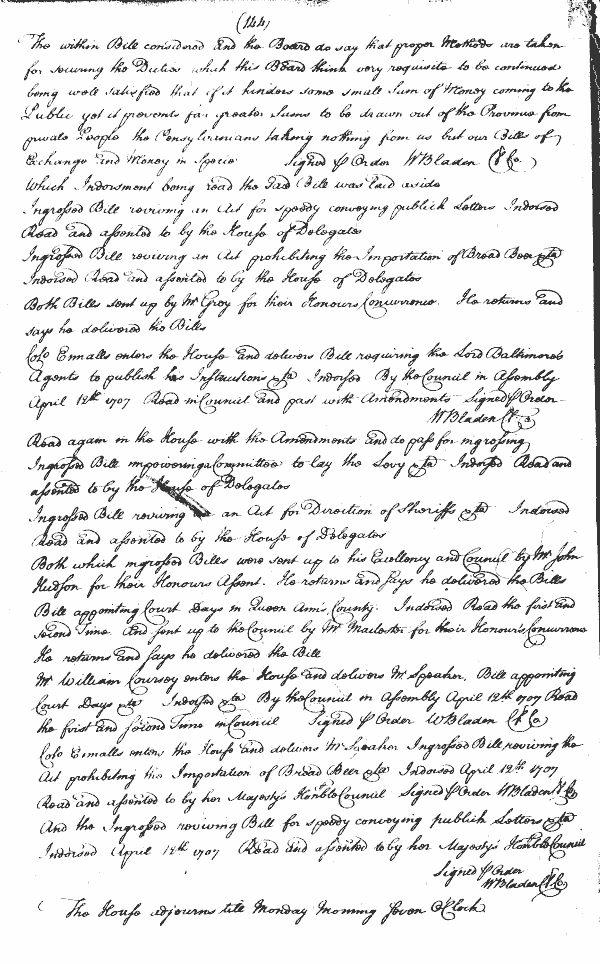 (144)
The within Bill considered and the Board do say that proper Methods are taken
for securing the Duties which this Board think very requisite to be continued
being well satisfied that if it hinders some small Sum of Money coming to the
Publick yet it prevents far greater Sums to be drawn out of the Province from
private People the Pensylvanians taking nothing from us but our Bills of
Exchange and Money in Specie Signed p Order W Bladen Cl Co.
Which Indorsment being read the said Bill was laid aside
Ingrossed Bill reviving an Act for speedy conveying publick Letters Indorsed
Read and assented to by the House of Delegates
Ingrossed Bill reviving an Act prohibiting the Importation of Bread Beer &ta
Indorsed Read and assented to by the House of Delegates
Both Bills sent up by Mr Grey for their Honours Concurrence. He returns and
says he delivered the Bills
Colo Ennalls enters the House and delivers Bill requiring the Lord Baltimore's
Agents to publish his Instructions &ta Indorsed By the Council in Assembly
April 12th 1707 Read in Council and past with Amendments Signed p Order
W Bladen Cl Co
Read again in the House with the Amendments and do pass for ingrossing
Ingrossed Bill impowering a Committee to lay the Levy &ta Indorsed Read and
assented to by the House of Delegates
Ingrossed Bill reviving an Act for Direction of Sheriffs &ta Indorsed
Read and assented to by the House of Delegates
Both which ingrossed Bills were sent up to his Excellency and Council by Mr John
Hudson for their Honours Assent. He returns and says he delivered the Bills
Bill appointing Court Days in Queen Ann's County. Indorsed Read the first and
second Time And sent up to the Council by Mr for their Honour's Concurrence
He returns and says he delivered the Bill
Mr William Coursey enters the House and delivers Mr Speaker, Bill appointing
Court Days &ta Indorsed &ta By the Council in Assembly April 12th 1707 Read
the first and second Time in Council Signed p Order W Bladen Cl Co
Colo Ennalls enters the House and delivers Mr Speaker Ingrossed Bill reviving the
Act prohibiting the Importation of Bread Beer &ta Indorsed April 12th 1707
Read and assented to by her Majesty's Honble Council Signed p Order W Bladen Cl Co
And the Ingrossed reviving Bill for speedy conveying publick Letters &ta
Indorsed April 12th 1707 Read and assented to by her Majesty's Honble Council
Signed p Order
W Bladen Cl Co
The House adjourns till Monday Morning Seven O Clock